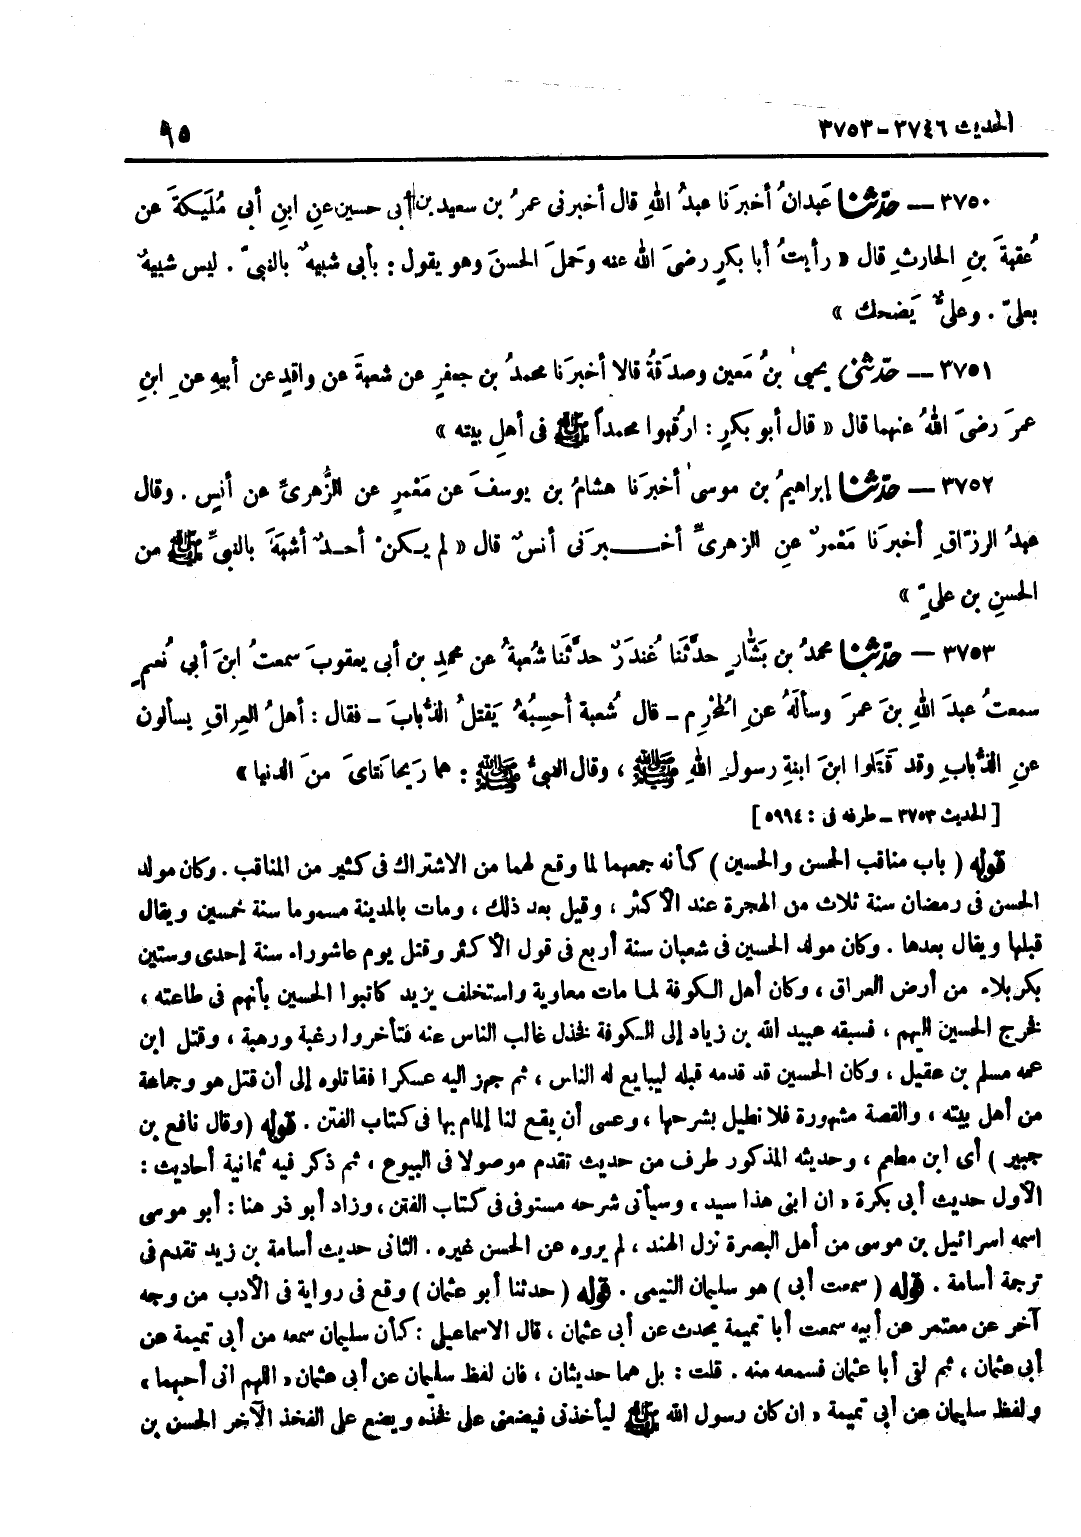 الحديث ٣٧٤٦ - ٣٧٥٣
٩٥
٣٧٥٠ — حدّثنا عَبدانُ أخبرَنا عبدُ اللهِ قال أخبرنى عمرُ بن سعيد بن أبى حسين عنِ ابنِ أبى مُلَيكةَ عن
عُقبةَ بنِ الحارثِ قال « رأيتُ أبا بكرٍ رضىَ الله عنه وحَملَ الحسنَ وهو يقول : بأبى شبيهٌ بالنبىّ . ليس شبيهٌ
بعلىّ . وعلىٌّ يَضحك »
٣٧٥١ — حدّثنى يحيى بنُ مَعين وصدقةُ قالا أخبرَنا محمدُ بن جعفرٍ عن شعبةَ عن واقدٍ عن أبيهِ عنِ ابنِ
عمرَ رضىَ اللهُ عنهما قال « قال أبو بكرٍ : ارقُبوا محمداً ﷺ فى أهلِ بيته »
٣٧٥٢ — حدّثنا إبراهيمُ بن موسى أخبرَنا هشامُ بن يوسفَ عن مَعْمرٍ عن الزُّهرىِّ عن أنسٍ . وقال
عبدُ الرزّاقِ أخبرَنا مَعْمرٌ عنِ الزهرىِّ أخبرَنى أنسٌ قال « لم يكنْ أحدٌ أشبهَ بالنبىِّ ﷺ من
الحسنِ بن علىٍّ »
٣٧٥٣ — حدّثنا محمدُ بن بَشّارٍ حدَّثَنا غُندَرٌ حدَّثَنا شُعبةُ عن محمدِ بن أبى يعقوبَ سمعتُ ابنَ أبى نُعمٍ
سمعتُ عبدَ اللهِ بنَ عمرَ وسألَهُ عنِ المُحْرِمِ – قال شُعبة أحسِبُهُ يَقتلُ الذُّبابَ – فقال : أهلُ العِراقِ يسألون
عنِ الذُّبابِ وقد قَتَلوا ابنَ ابنةِ رسولِ اللهِ ﷺ ، وقال النبىُّ ﷺ : هما رَيحانَتاىَ منَ الدنيا »
[ الحديث ٣٧٥٣ – طرفه فى : ٥٩٩٤ ]
قوله ( باب مناقب الحسن والحسين ) كأنه جمعهما لما وقع لهما من الاشتراك فى كثير من المناقب . وكان مولد
الحسن فى رمضان سنة ثلاث من الهجرة عند الأكثر ، وقيل بعد ذلك ، ومات بالمدينة مسموما سنة خمسين ويقال
قبلها ويقال بعدها . وكان مولد الحسين فى شعبان سنة أربع فى قول الأكثر وقتل يوم عاشوراء سنة إحدى وستين
بكربلاء من أرض العراق ، وكان أهل الكوفة لما مات معاوية واستخلف يزيد كاتبوا الحسين بأنهم فى طاعته ،
فخرج الحسين اليهم ، فسبقه عبيد الله بن زياد إلى الكوفة فخذل غالب الناس عنه فتأخروا رغبة ورهبة ، وقتل ابن
عمه مسلم بن عقيل ، وكان الحسين قد قدمه قبله ليبايع له الناس ، ثم جهز اليه عسكرا فقاتلوه إلى أن قتل هو وجماعة
من أهل بيته ، والقصة مشهورة فلا نطيل بشرحها ، وعسى أن يقع لنا إلمام بها فى كتاب الفتن . قوله ( وقال نافع بن
جبير ) أى ابن مطعم ، وحديثه المذكور طرف من حديث تقدم موصولا فى البيوع ، ثم ذكر فيه ثمانية أحاديث :
الأول حديث أبى بكرة « ان ابنى هذا سيد ، وسيأتى شرحه مستوفى فى كتاب الفتن ، وزاد أبو ذر هنا : أبو موسى
اسمه اسرائيل بن موسى من أهل البصرة نزل الهند ، لم يروه عن الحسن غيره . الثانى حديث أسامة بن زيد تقدم فى
ترجمة أسامة . قوله ( سمعت أبى ) هو سليمان التيمى . قوله ( حدثنا أبو عثمان ) وقع فى رواية فى الأدب من وجه
آخر عن معتمر عن أبيه سمعت أبا تميمة يحدث عن أبى عثمان ، قال الاسماعيلى : كأن سليمان سمعه من أبى تميمة عن
أبى عثمان ، ثم لقى أبا عثمان فسمعه منه . قلت : بل هما حديثان ، فان لفظ سليمان عن أبى عثمان « اللهم انى أحبهما »
ولفظ سليمان عن أبى تميمة « ان كان رسول الله ﷺ ليأخذنى فيضعنى على فخذه ويضع على الفخذ الآخر الحسن بن